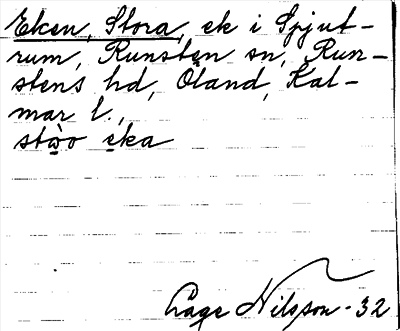 Eken, Stora, ek i Spjut-
rum, Runsten sn, Run-
stens hd, Öland, Kal-
mar l.,
stòo eka
Åge Nilsson - 32